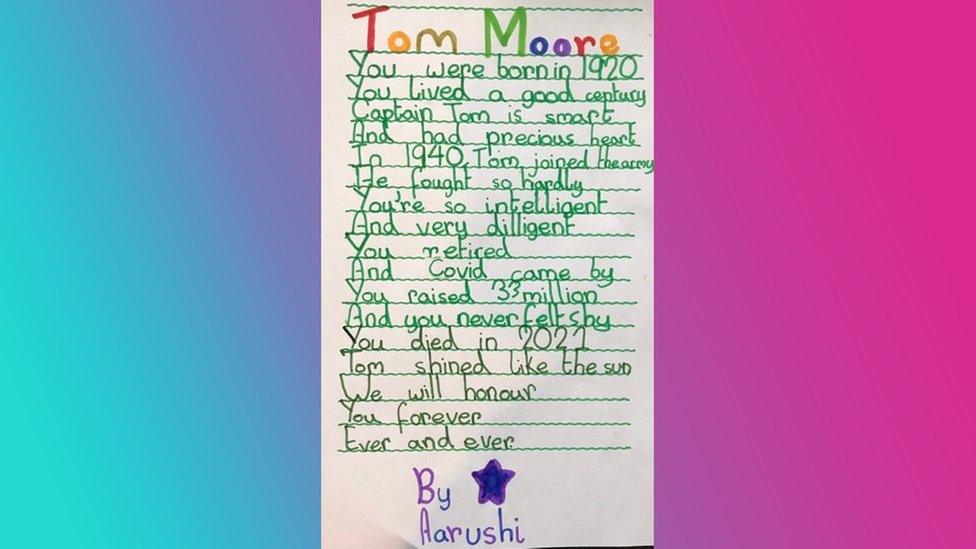 Tom Moore
You were born in 1920
You lived a good century
Captain Tom is smart
And had precious heart
In 1940, Tom joined the army
He fought so hardly
You're so intelligent
And very dilligent
You retired
And Covid came by
You raised 33 million
And you never felt shy
You died in 2021
Tom shined like the sun
We will honour
You forever
Ever and ever.
By
Aarushi